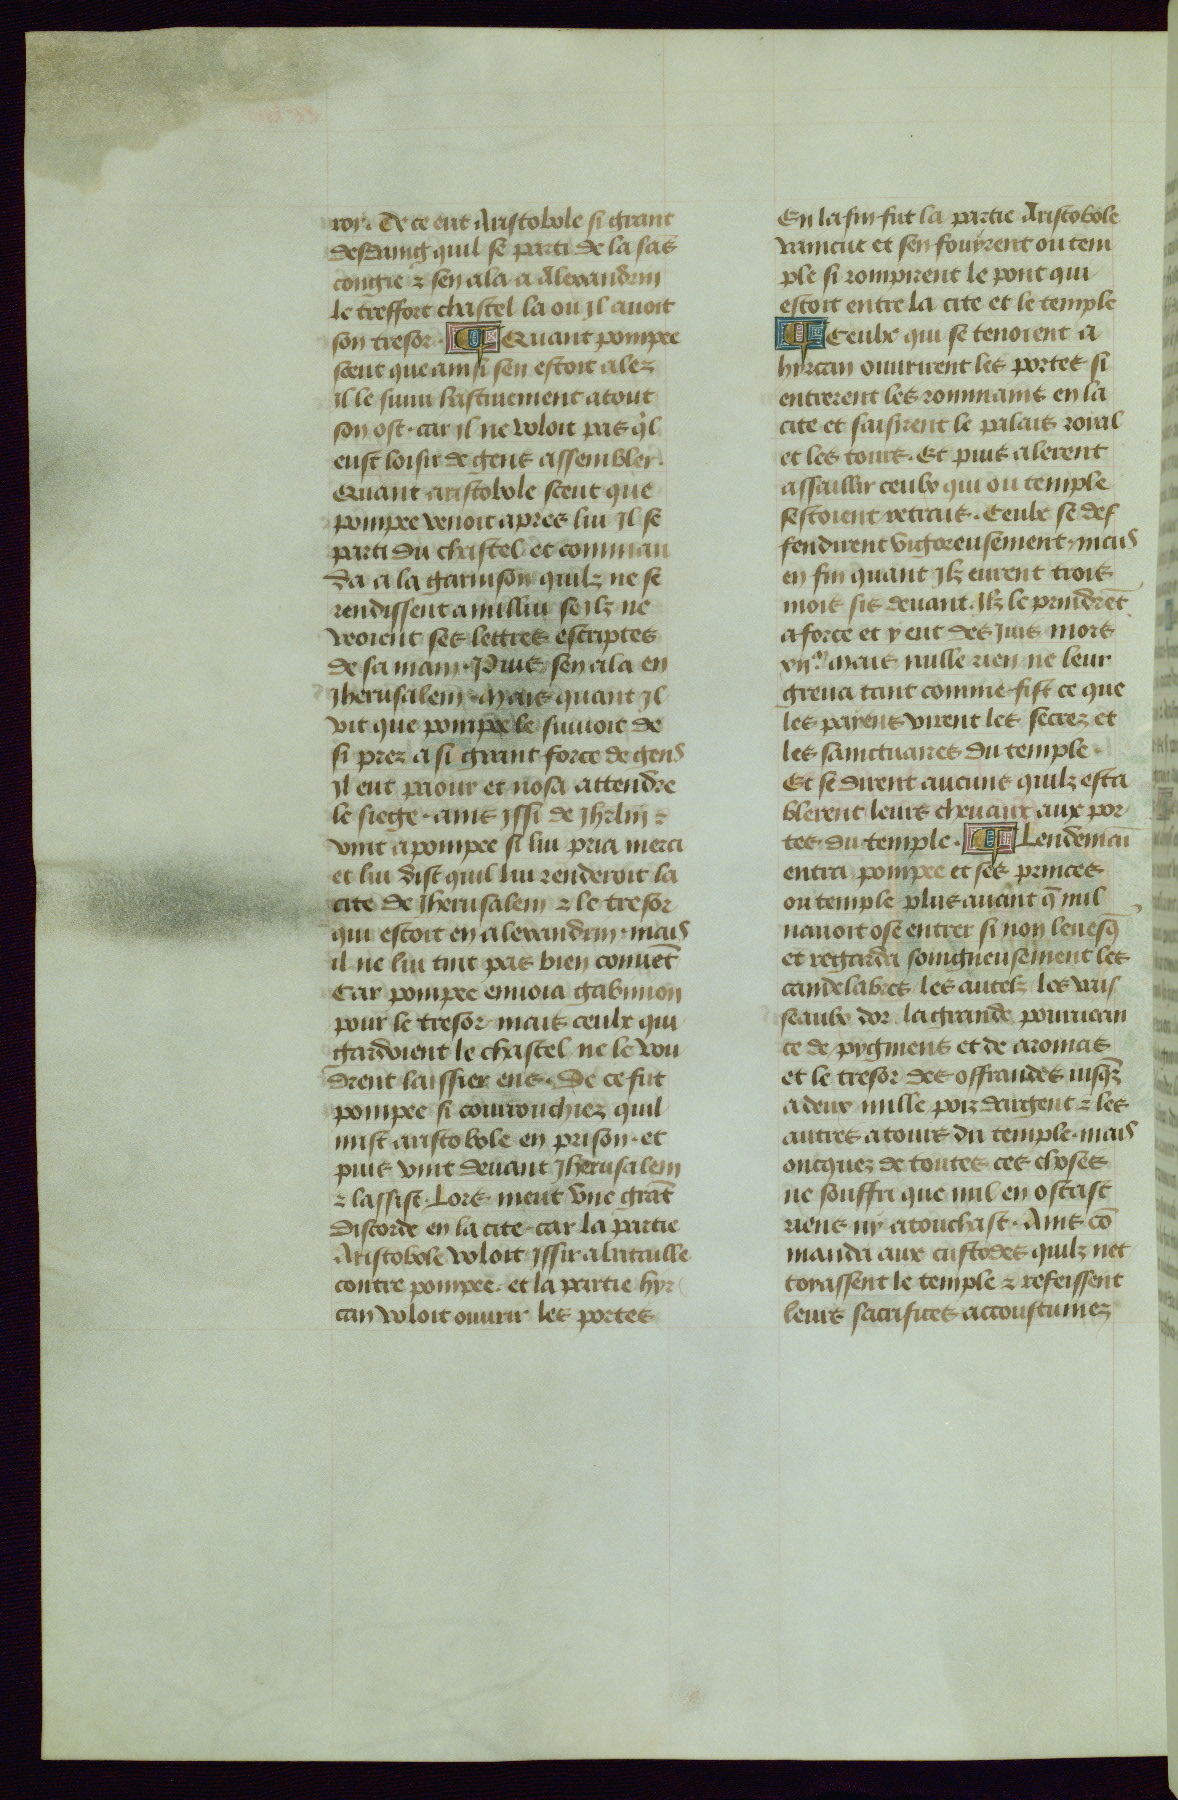 roy. De ce eut Aristobole si grant
desdaing quil se parti de la sās
congie ⁊ sen ala a Alexandrin
le tresfort chastel la ou il auoit
son tresor. Quant pompee
sceut que ainsi sen estoit alez
il le suiui hastiuement atout
son ost. car il ne voloit pas q̄l
eust loisir de gens assembler.
Quant aristobole sceut que
pompee venoit apres lui Il se
parti du chastel et comman
da a la garnison quilz ne se
rendissent a nullui se ilz ne
veoient ses lettres escriptes
de sa main. Puis sen ala en
Jherusalem. Mais quant Il
vit que pompee le suiuoit de
si prez a si grant force de gens
Il eut paour et nosa attendre
le siege. ains issi de Jhrlm ⁊
vint a pompee si lui pria merci
et lui dist quil lui renderoit la
cite de Jherusalem ⁊ le tresor
qui estoit en alexandrin. mais
il ne lui tint pas bien conuēt
Car pompee enuoia gabinion
pour le tresor. mais ceulx qui
gardoient le chastel ne le vou
drent laissier ens. De ce fut
pompee si courrouchiez quil
mist aristobole en prison. et
puis vint deuant Jherusalem
⁊ lassist. Lors meut vne grāt
discorde en la cite. car la partie
Aristobole voloit issir a bataille
contre pompee. et la partie hyr
can voloit ouurir les portes
En la fin fut la partie Aristobole
vaincue et sen fouyrent ou tem
ple si rompirent le pont qui
estoit entre la cite et le temple
Ceulx qui se tenoient a
hyrcan ouurirent les portes si
entrerent les rommains en la
cite et saisirent le palais roial
et les tours. Et puis alerent
assaillir ceulx qui ou temple
sestoient retrais. Ceulx se def
fendirent vigoreusement. mais
en fin quant Ilz eurent trois
mois sis deuant. Ilz le prindrēt
a force et y eut des Juis mors
xijᵐ. Mais nulle rien ne leur
greua tant comme fist ce que
les payens virent les secrez et
les sanctuaires du temple.
Et se dirent aucuns quilz esta
blerent leurs cheuaux aux por
tes du temple. Lendemain
entra pompee et ses princes
ou temple plus auant q̄ nul
nauoit ose entrer si non leuesq̄
et regarda soingneusement les
candelabres les autelz les vais
seaulx dor. la grande pouruean
ce de pygmens et de aromas
et le tresor des offrandes iusq̄z
a deux mille poiz dargent ⁊ les
autres atours du temple. mais
oncquez de toutes ces choses
ne souffri que nul en ostast
riens ny atouchast. Ains cō
manda aux custodes quilz net
toyassent le temple ⁊ refeissent
leurs sacrifices accoustumez